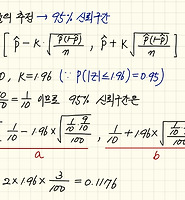 의 추정 → 95% 신뢰구간
[ p̂ - K √(p̂(1-p̂)/n) , p̂ + K √(p̂(1-p̂)/n) ]
0, K=1.96 (∵ P(|Z|≤1.96)=0.95)
= 1/10 이므로 95% 신뢰구간은
1/10 - 1.96 × √(1/10 9/10 / 100) , 1/10 + 1.96 × √(1/10 9/10 / 100)
a b
2×1.96× 3/100 = 0.1176